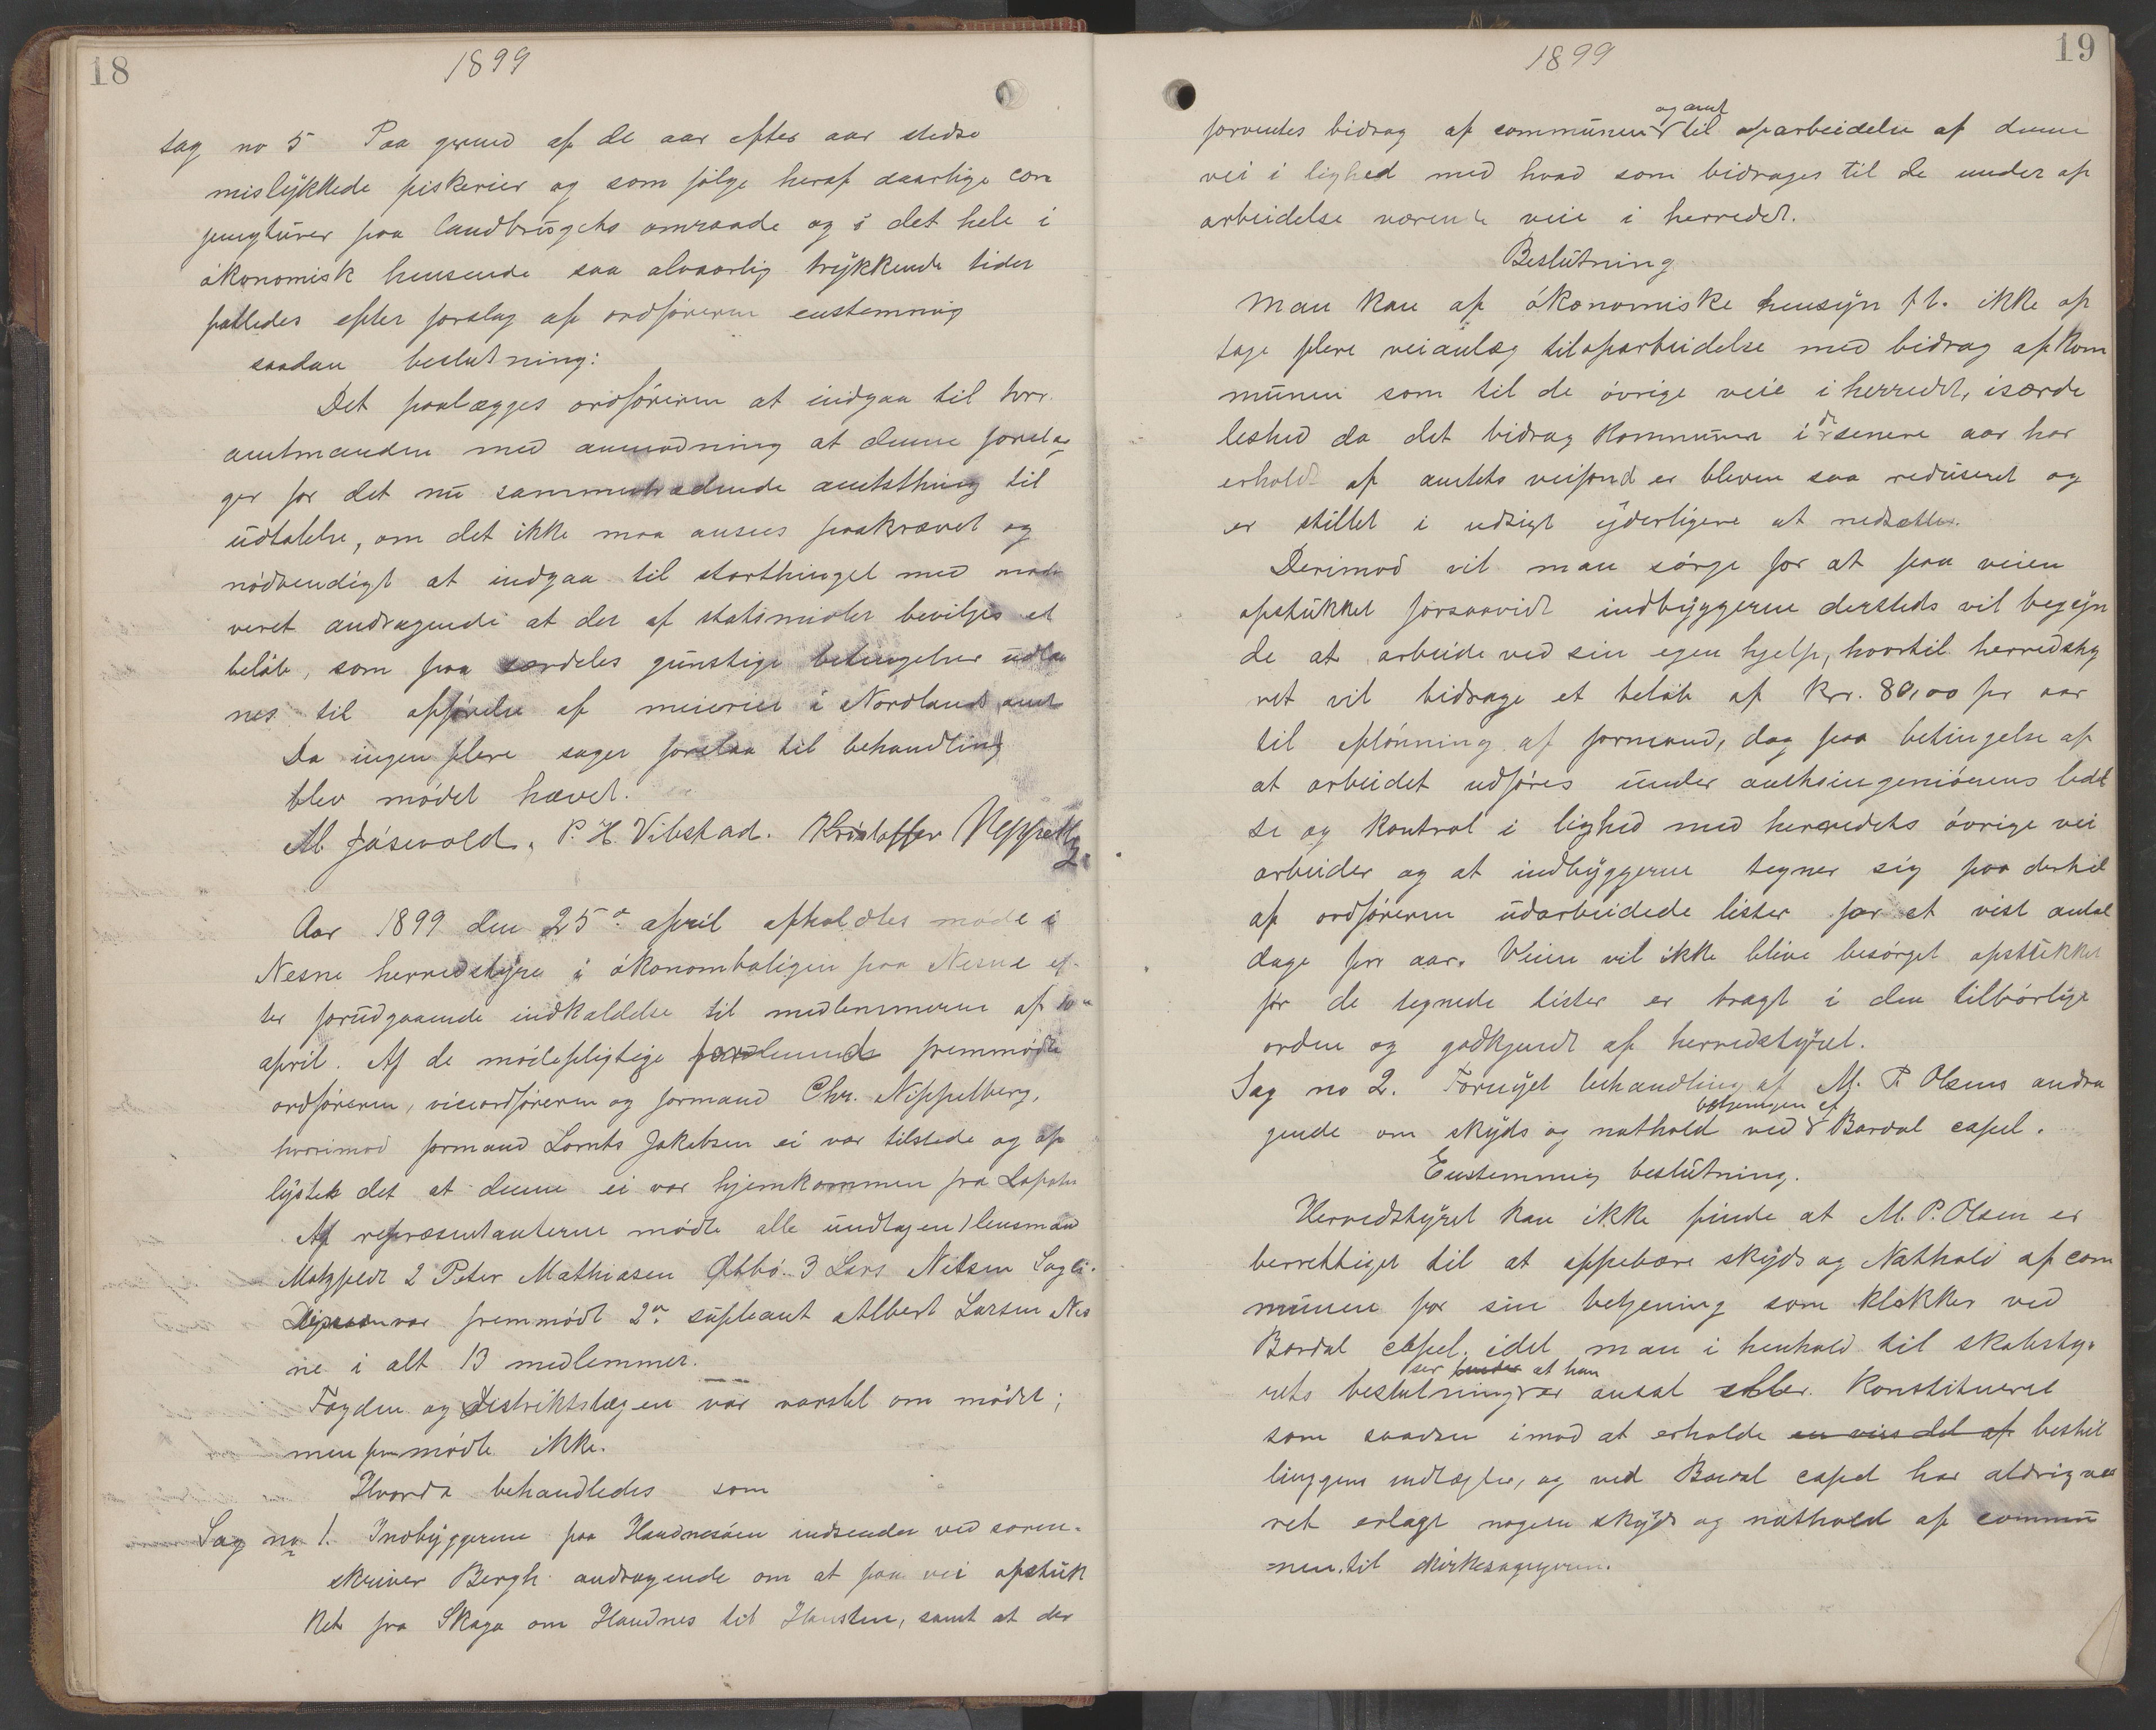 18
1899
sag no 5 Paa grund af de aar efter aar stedse
mislykkede fiskerier og som følge heraf daarlige con
jungturer paa landbrugets omraade og i det hele i
økonomisk henseende saa alvorlig trykkende tider
fattedes efter forslag af ordføreren enstemmig
saadan beslutning:
Det paalægges ordføreren at indgaa til herr.
amtmanden med anmodning at denne forelæg
ger for det nu sammentrædende amtsthing til
udtalelse, om det ikke maa ansees paakrævet og
nødvendigt at indgaa til storthinget med moti
veret andragende at der af statsmidler bevilges et
beløb, som paa særdeles gunstige betingelser udlaa
nes til opførelse af meierier i Nordlands amt
Da ingen flere sager forelaa til behandling
blev mødet hævet.
M. Jøsevold. P. H. Vibstad. Kristoffer Neppelbg.
Aar 1899 den 25de april afholdtes møde i
Nesne herredstyre i økonomboligen paa Nesne ef-
ter forudgaaende indkaldelse til medlemmerne af 10de
april. Af de mødepligtige formænd fremmødte
ordføreren, viceordføreren og formand Chr. Nippelberg,
hvorimod formand Lornts Jakobsen ei var tilstede og op
lystes det at denne ei var hjemkommen fra Lofoten
Af repræsentanterne mødte alle undtagen 1 lensmand
Motzfeldt 2 Peter Mathiasen Økbø. 3 Lars Nilsen Sagli.
var fremmødt 2den supleant Albert Larsen Nes
ne i alt 13 medlemmer.
Fogden og Distriktslægen var varslet om mødet;
men fremmødte ikke.
Hvorda behandledes som
Sag no 1. Indbyggerne paa Handnesøen indsender ved soren-
skriver Bergh andragende om at faa vei opstuk
ket fra Skaga om Handnes til Hansten, samt at der
1899
19
og amt
forventes bidrag af communen til oparbeidelse af denne
vei i lighed med hvad som bidrages til de under op
arbeidelse værende veie i herredet.
Beslutning
Man kan af økonomiske hensyn f t. ikke op
tage flere veianlæg til oparbeidelse med bidrag af kom
munen som til de øvrige veie i herredet, isærde
leshed da det bidrag kommunen i de senere aar har
erholdt af amtets veifond er bleven saa reduseret og
er stillet i udsigt yderligere at nedsættes.
Derimod vil man sørge for at faa veien
opstukket forsaavidt indbyggerne dersteds vil begyn
de at arbeide ved sin egen hjelp, hvortil herredsty
ret vil bidrage et beløb af Kr. 80,00 pr aar
til aflønning af formand, dog paa betingelse af
at arbeidet udføres under amtsingeniørens ledel
se og kontrol i lighed med herredets øvrige vei
arbeider og at indbyggerne tegner sig paa dertil
af ordføreren udarbeidede lister for et vist antal
dage pr aar. Veien vil ikke blive besørget opstukket
før de tegnede lister er bragt i den tilbørlige
orden og godkjendt af herredstyret.
Sag no 2. Fornyet behandling af M. P. Olsens andra
betjeningen af
gende om skyds og nathold ved Bardal capel.
Enstemmig beslutning.
Herredstyret kan ikke finde at M. P. Olsen er
berrettiget til at oppebære skyds og Nathold af com
munen for sin betjening som klokker ved
Bardal capel. idet man i henhold til skolesty-
ser finder at han
rets beslutning er ansat eller konstitueret
som saadan imod at erholde en viss del af bestil
lingens indtægter, og ved Bardal capel har aldrig væ
ret erlagt nogen skyds og nathold af commu
=nen til kirkesangeren.